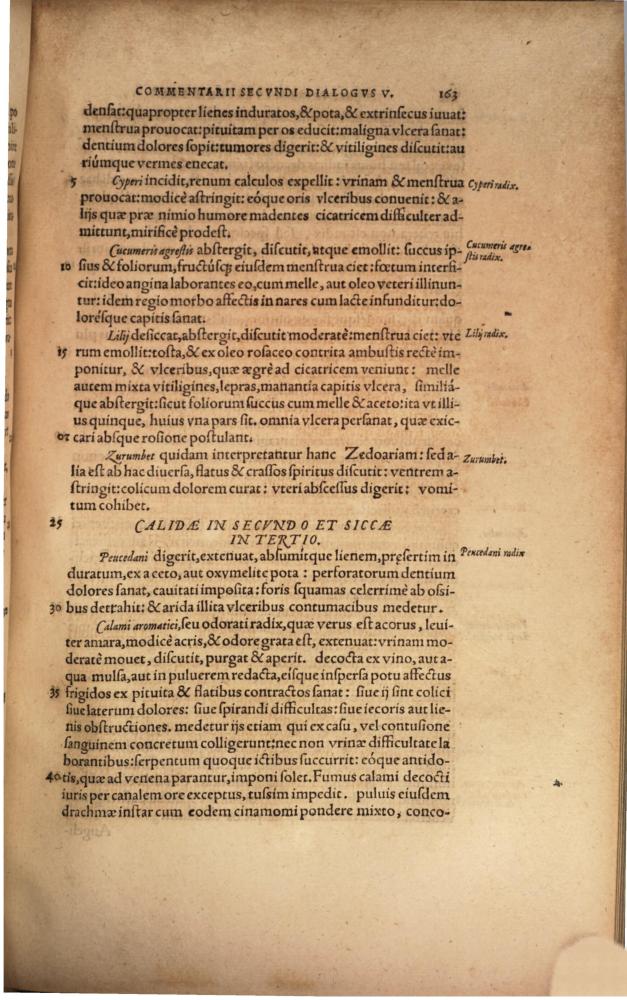 COMMENTARII SECVNDI DIALOGVS V. 163
denſat:quapropter lienes induratos,&pota,& extrinſecus iuuat:
menſtrua prouocat:pituitam per os educit:maligna vlcera ſanat:
dentium dolores ſopit:tumores digerit:& vitiligines diſcutit:au
riúmque vermes enecat.
5 Cyperi incidit,renum calculos expellit: vrinam & menſtrua Cyperi radix.
prouocat:modicè aſtringit: eóque oris vlceribus conuenit: & a-
lijs quæ præ nimio humore madentes cicatricem difficulter ad-
mittunt,mirificè prodeſt.
Cucumeris agreſtis abſtergit, diſcutit, atque emollit: ſuccus ip- Cucumeris agre-
ſtis radix.
10 ſius & foliorum,fructúſq; eiuſdem menſtrua ciet:fœtum interfi-
cit:ideo angina laborantes eo,cum melle, aut oleo veteri illinun-
tur: idem regio morbo affectis in nares cum lacte infunditur:do-
loréſque capitis ſanat.
Lilij deſiccat,abſtergit,diſcutit moderatè:menſtrua ciet: vte Lilij radix.
15 rum emollit:toſta,& ex oleo roſaceo contrita ambuſtis rectè im-
ponitur, & vlceribus,quæ ægrè ad cicatricem veniunt: melle
autem mixta vitiligines,lepras,manantia capitis vlcera, ſimiliá-
que abſtergit:ſicut foliorum ſuccus cum melle & aceto:ita vt illi-
us quinque, huius vna pars ſit. omnia vlcera perſanat, quæ exic-
02 cari abſque roſione poſtulant.
Zurumbet quidam interpretantur hanc Zedoariam: ſed a- Zurumbet.
lia eſt ab hac diuerſa, flatus & craſſos ſpiritus diſcutit: ventrem a-
ſtringit:colicum dolorem curat: vteri abſceſſus digerit: vomi-
tum cohibet.
25 CALIDÆ IN SECVNDO ET SICCÆ
IN TERTIO.
Peucedani digerit,extenuat, abſumítque lienem,præſertim in Peucedani radix
duratum,ex aceto, aut oxymelite pota: perforatorum dentium
dolores ſanat, cauitati impoſita: foris ſquamas celerrimè ab oſſi-
30 bus detrahit: & arida illita vlceribus contumacibus medetur.
Calami aromatici,ſeu odorati radix, quæ verus eſt acorus, leui-
ter amara, modicè acris, & odore grata eſt, extenuat: vrinam mo-
deratè mouet, diſcutit, purgat & aperit. decocta ex vino, aut a-
qua mulſa, aut in puluerem redacta, eíſque inſperſa potu affectus
35 frigidos ex pituita & flatibus contractos ſanat: ſiue ij ſint colici
ſiue laterum dolores: ſiue ſpirandi difficultas: ſiue iecoris aut lie-
nis obſtructiones. medetur ijs etiam qui ex caſu, vel contuſione
ſanguinem concretum colligerunt:nec non vrinæ difficultate la
borantibus:ſerpentum quoque ictibus ſuccurrit: eóque antido-
40 tis,quæ ad venena parantur,imponi ſolet. Fumus calami decocti
iuris per canalem ore exceptus, tuſſim impedit. puluis eiuſdem
drachmæ inſtar cum eodem cinamomi pondere mixto, conco-